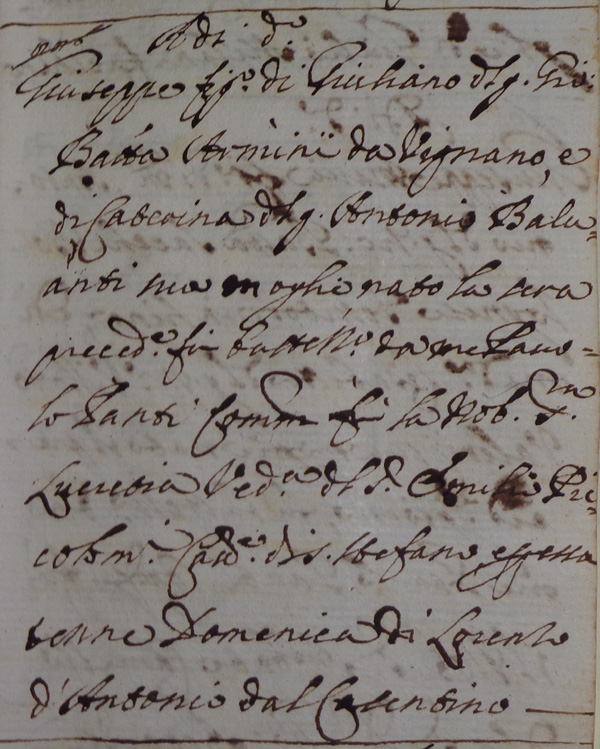 Adi dº
Giuseppe figº. di Giuliano dlg. Gio:
Batta Armini da Vignano, e
di Caterina dlg. Antonio Balu=
anti sua moglie nato la sera
precedᵉ. fu battᵗᵒ. da me Pauo=
lo Santi Comm fu la Nob. Sʳᵃ.
Lucretia Vedᵃ. dl S. Emilio Pic=
colomⁱ. Cauᵉ. di S. Stefano, espressa
tenne Domenica di Lorenzo
d'Antonio dal Casentino